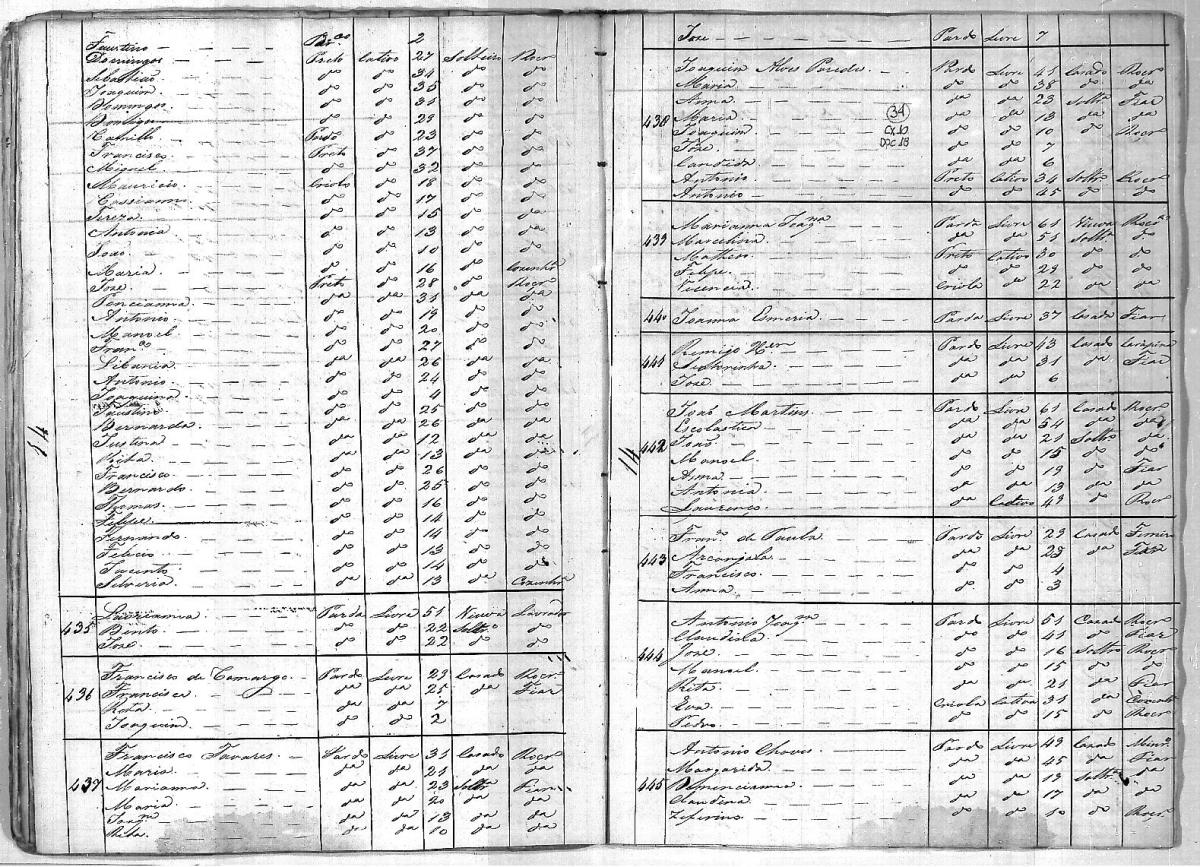 Faustino Br.co 2
Domingos Preto Cativo 27 Solteiro Rocr.o
Sebastião do do 34 do do
Joaquim do do 35 do do
Domingos do do 31 do do
do do 29 do do
Camillo Pardo do 23 do do
Francisco Preto do 37 do do
Miguel do do 32 do do
Mauricio Criolo do 18 do do
Cassianno do do 17 do do
Tereza do do 15 do da
Antonia do do 13 do da
João do do 10 do do
Maria do do 16 do Cozinh.a
Joze Preto do 28 do Rocr.o
Poncianna da da 31 da da
Antonio do do 19 do do
Manoel do do 20 do do
Fran.co do do 27 do do
Libania da da 26 da da
Antonio do do 24 do do
Joaquina do do 4 do do
Faustino da da 25 da da
Bernarda da da 26 da da
Justina da da 12 da da
Rita da da 13 da da
Francisco do do 26 do do
Bernardo do do 25 do do
Thomas do do 16 do do
Felipe do do 14 do do
Fernando do do 14 do do
Felicio do do 13 do do
Jacinto do do 14 do do
Silveria da da 13 da Cozinh.a
14
435 Parda Livre 51 Viuva Lavrador
Bento do do 22 Solt.o do
Joze do do 22 do do
436 Francisco de Camargo Pardo Livre 29 Casado Rocr.o
Francisca da da 25 da Fiar
Rita da da 7
Joaquim do do 2
437 Francisco Tavares Pardo Livre 31 Casado Rocr.o
Maria da da 21 da da
Marianna da da 23 Solt.a Fiar
Maria da da 20 da da
Joaq.m da da 13 da da
Rita da da 10 da da
Joze Pardo Livre 7
34
Cx 10
DOC 13
438 Joaquim Alves Paredes Pardo Livre 41 Casado Rocr.o
Maria do do 38 do da
Anna da da 23 Solt.a Fiar
Maria da da 13 da da
Joaquim do do 10 do Rocr.o
Joze do do 7
Candida da da 6
Antonio Preto Cativo 34 Solt.o Rocr.o
Antonio do do 45 do do
439 Marianna Joaq.na Parda Livre 61 Viuva Rocr.a
Marcelina da da 51 Solt.a do
Matheos Preto Cativo 30 do do
Felipe do do 29 do do
Vicencia Criola do 22 da da
440 Joanna Esmeria Parda Livre 37 Casada Fiar
441 Remijo Pardo Livre 43 Casado Carapina
da da 31 da Fiar
Joze da da 6
14
442 João Martins Pardo Livre 61 Casado Rocr.o
Escolastica da da 54 da da
João da da 21 Solt.o da
Manoel do do 15 do do
Anna da do 19 do Fiar
Antonia da da 13 da da
Laurenço da Cativo 49 do Rocr.o
443 Fran.co de Paula Pardo Livre 29 Casado
Arcanjela da da 29 da Fiar
Francisco do do 4
Anna do do 3
444 Antonio Joaq.m Pardo Livre 51 Casad Rocr.o
Claudiala do do 41 do Fiar
Joze do do 16 Solt.o Rocr.o
Manoel do do 15 do do
Rita da da 21 da Fiar
Eva Criola Cativa 31 da
Pedro do do 15 do Rocr.o
445 Antonio Chaves Pardo Livre 49 Casado Minr.o
Margarida da da 45 da Fiar
do da 19 Solt.a da
Claudina da da 17 da da
Zeferino do do 10 do Rocr.o